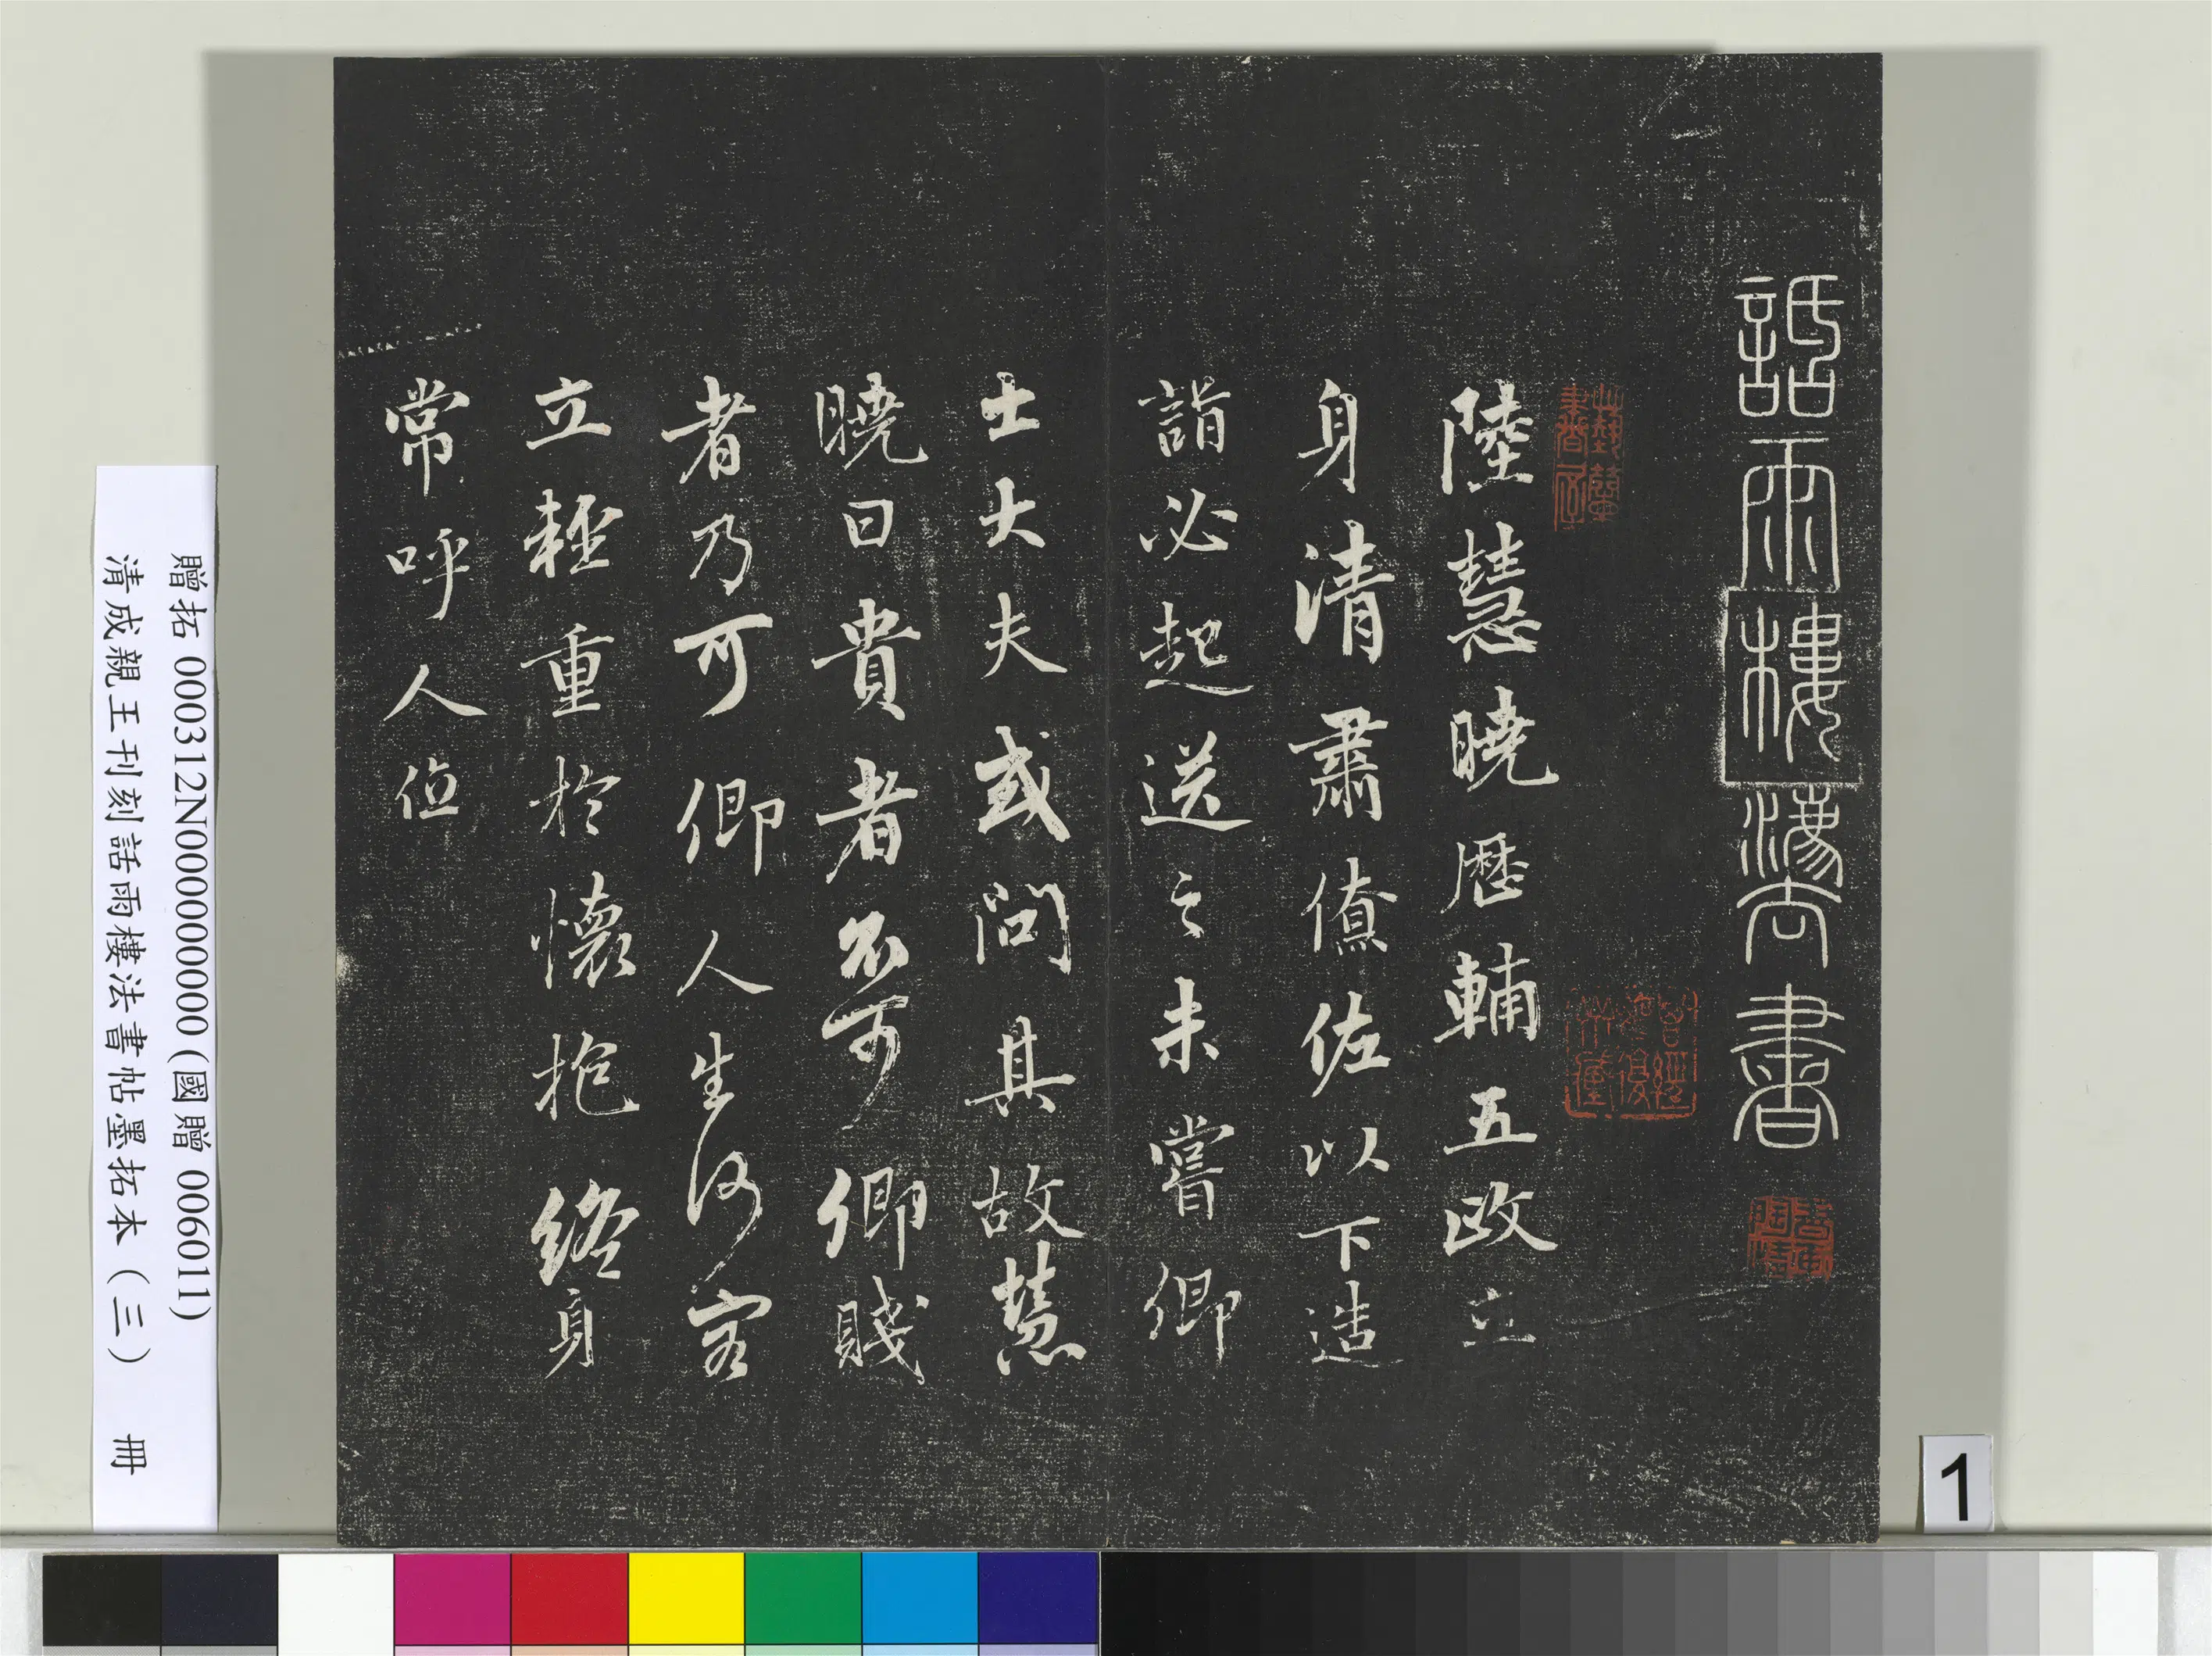 話雨樓灋書
陸慧曉歷輔五政立
身清肅僚佐以下造
詣必起送之未嘗卿
士大夫或問其故慧
曉曰貴者不可卿賤
者乃可卿人生何容
立輕重於懷抱終身
常呼人位
贈拓 000312N000000000 (國贈 006011)
清成親王刊刻話雨樓法書帖墨拓本（三） 冊
1